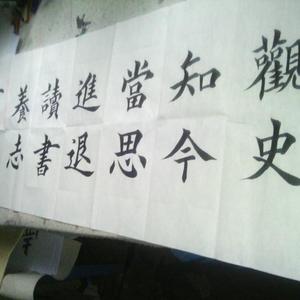 觀史
知今
當思
進退
讀書
養志